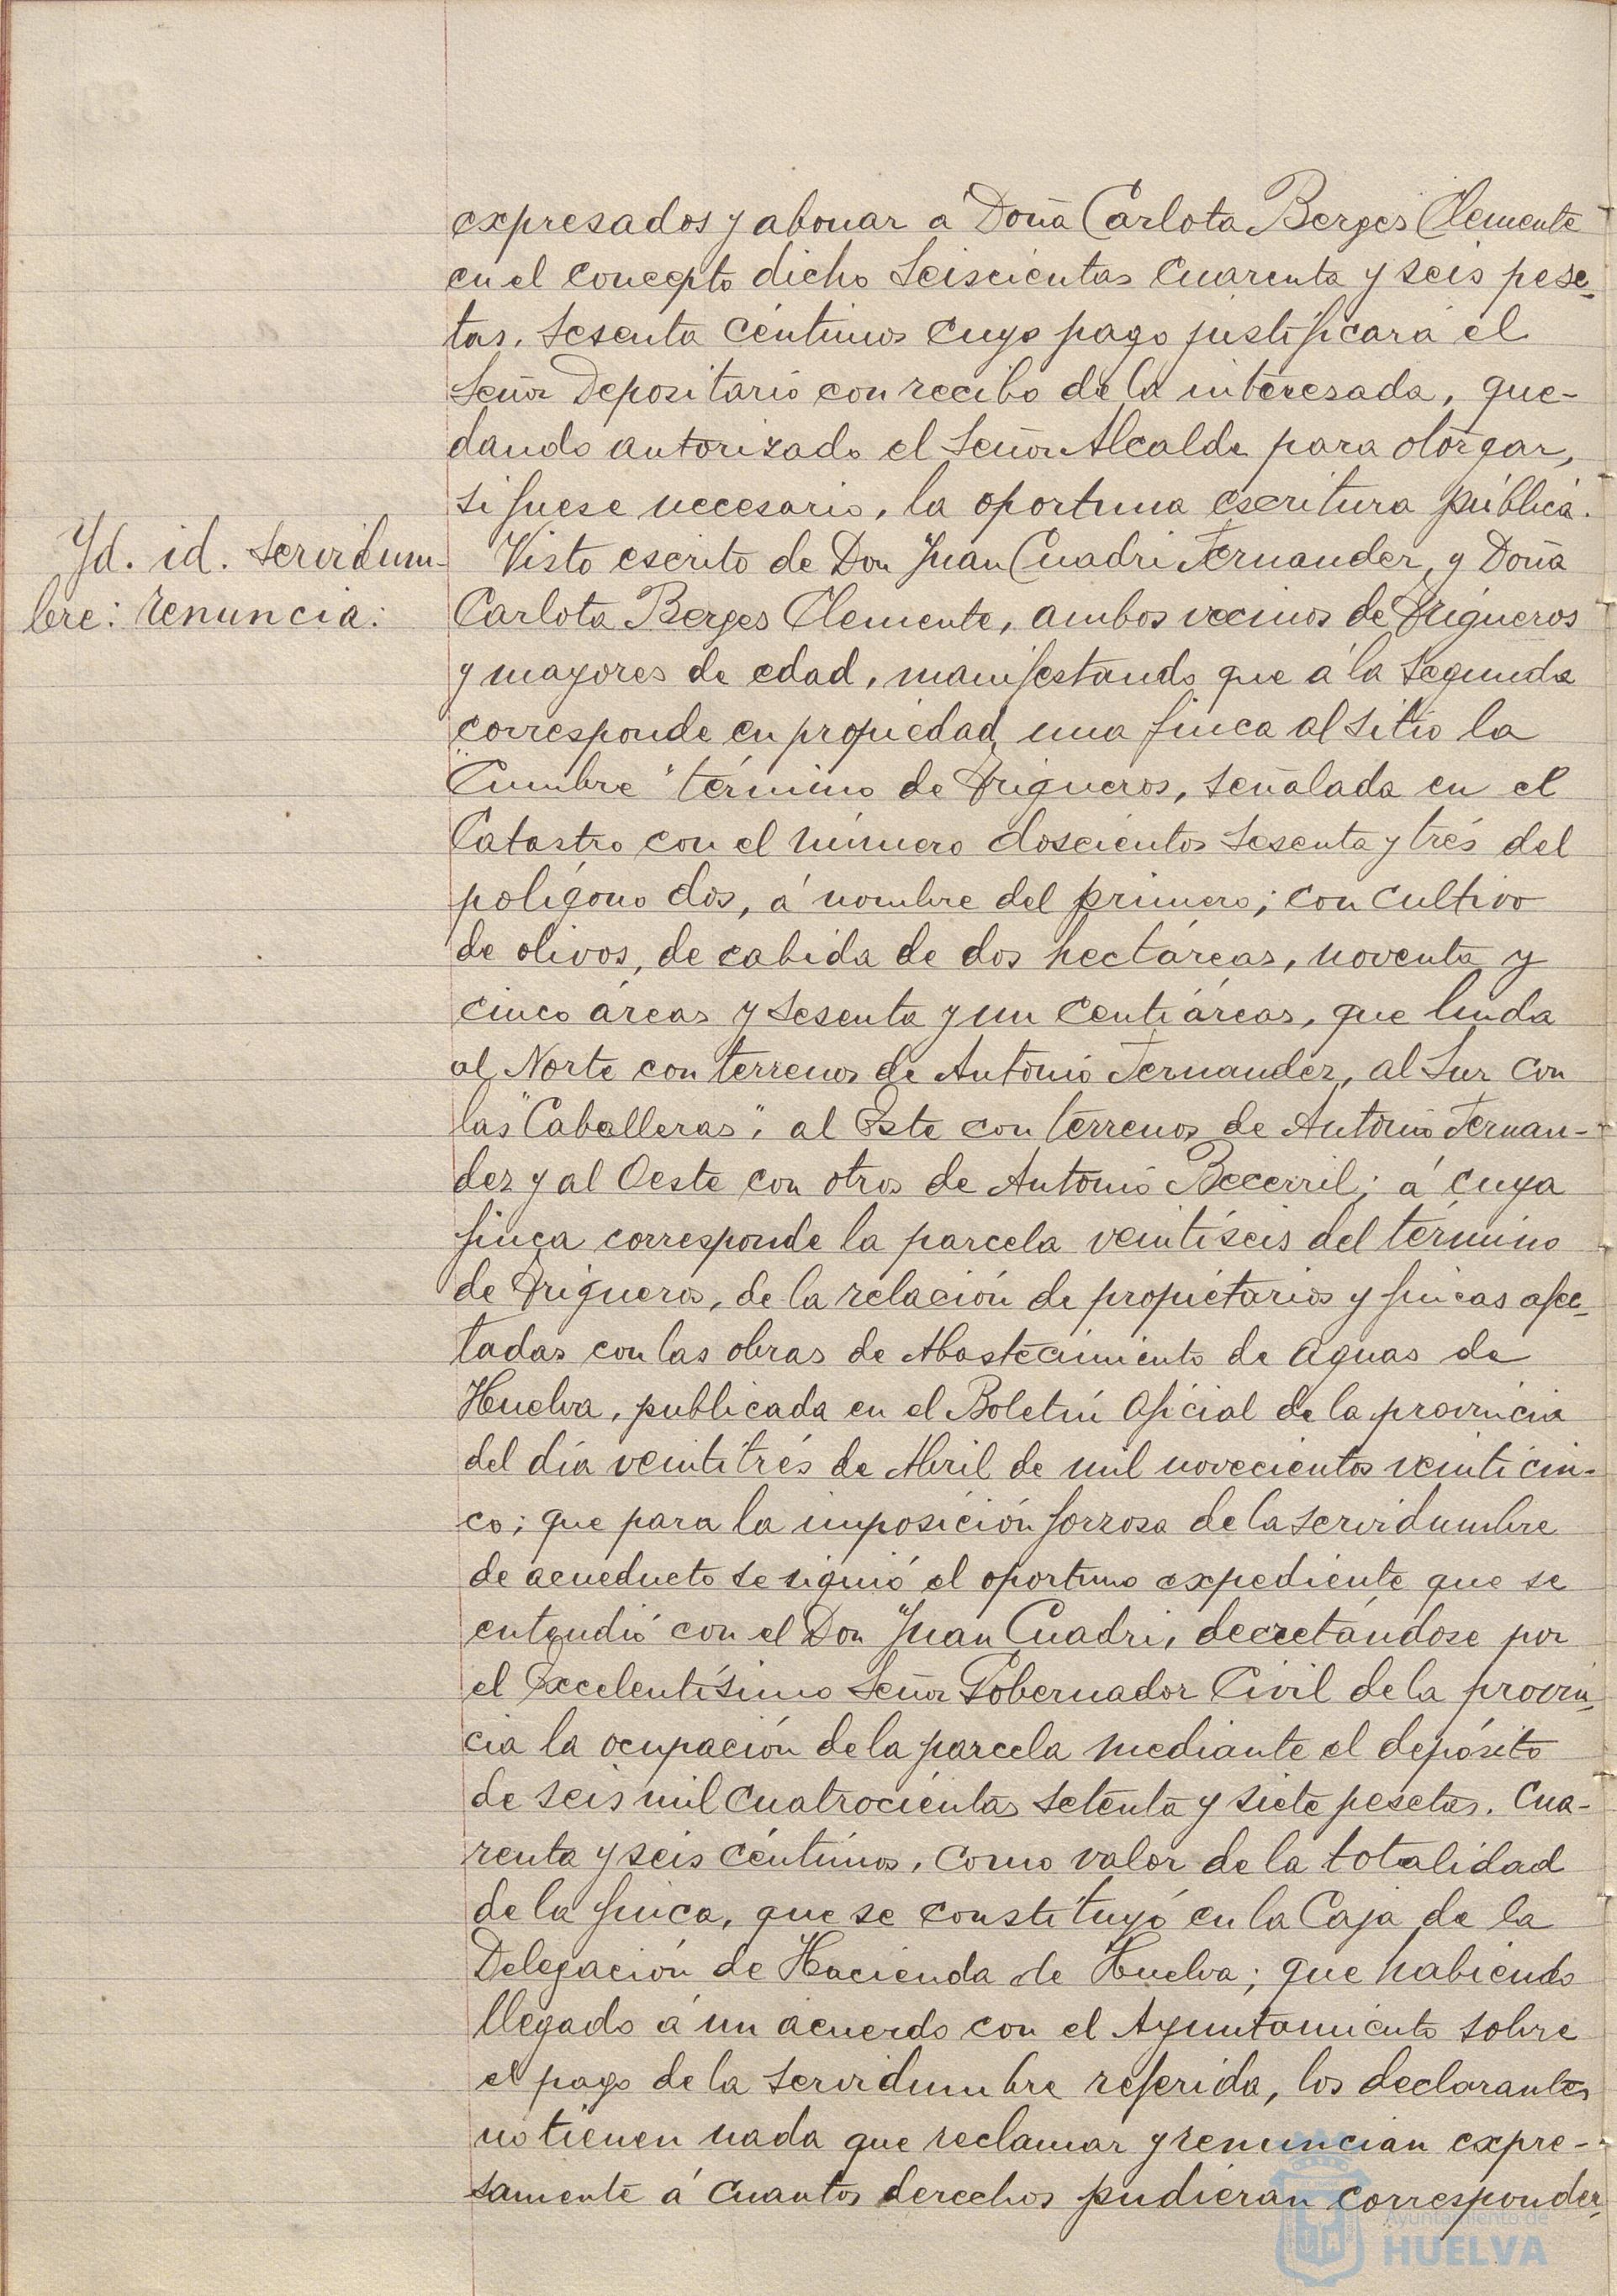 expresados y abonar a Doña Carlota Berges Clemente
en el concepto dicho seiscientas cuarenta y seis pese-
tas, sesenta céntimos cuyo pago justificará el
Señor Depositario con recibo de la interesada, que-
dando autorizado el Señor Alcalde para otorgar,
si fuese necesario, la oportuna escritura pública.
Yd. id. servidum-
bre: renuncia:
Visto escrito de Don Juan Cuadri Fernandez, y Doña
Carlota Berges Clemente, ambos vecinos de Trigueros
y mayores de edad, manifestando que á la segunda
corresponde en propiedad una finca al sitio la
"Cumbre" término de Trigueros, señalada en el
Catastro con el número doscientos sesenta y tres del
polígono dos, á nombre del primero; con cultivo
de olivos, de cabida de dos hectáreas, noventa y
cinco áreas y sesenta y un centiáreas, que linda
al Norte con terrenos de Antonio Fernandez, al Sur con
las "Caballeras", al Este con terrenos de Antonio Fernan-
dez y al Oeste con otros de Antonio Becerril; á cuya
finca corresponde la parcela veintiseis del término
de Trigueros, de la relación de propietarios y fincas afec-
tadas con las obras de Abastecimiento de aguas de
Huelva, publicada en el Boletín Oficial de la provincia
del día veintitrés de Abril de mil novecientos veinticin-
co; que para la imposición forzosa de la servidumbre
de acueducto se siguió el oportuno expediente que se
entendió con el Don Juan Cuadri, decretándose por
el Excelentísimo Señor Gobernador Civil de la provin-
cia la ocupación de la parcela mediante el depósito
de seis mil cuatrocientas setenta y siete pesetas, cua-
renta y seis céntimos, como valor de la totalidad
de la finca, que se constituyó en la Caja de la
Delegación de Hacienda de Huelva; que habiendo
llegado á un acuerdo con el Ayuntamiento sobre
el pago de la servidumbre referida, los declarantes
no tienen nada que reclamar y renuncian expre-
samente á cuantos derechos pudieran corresponder-
Ayuntamiento de
HUELVA